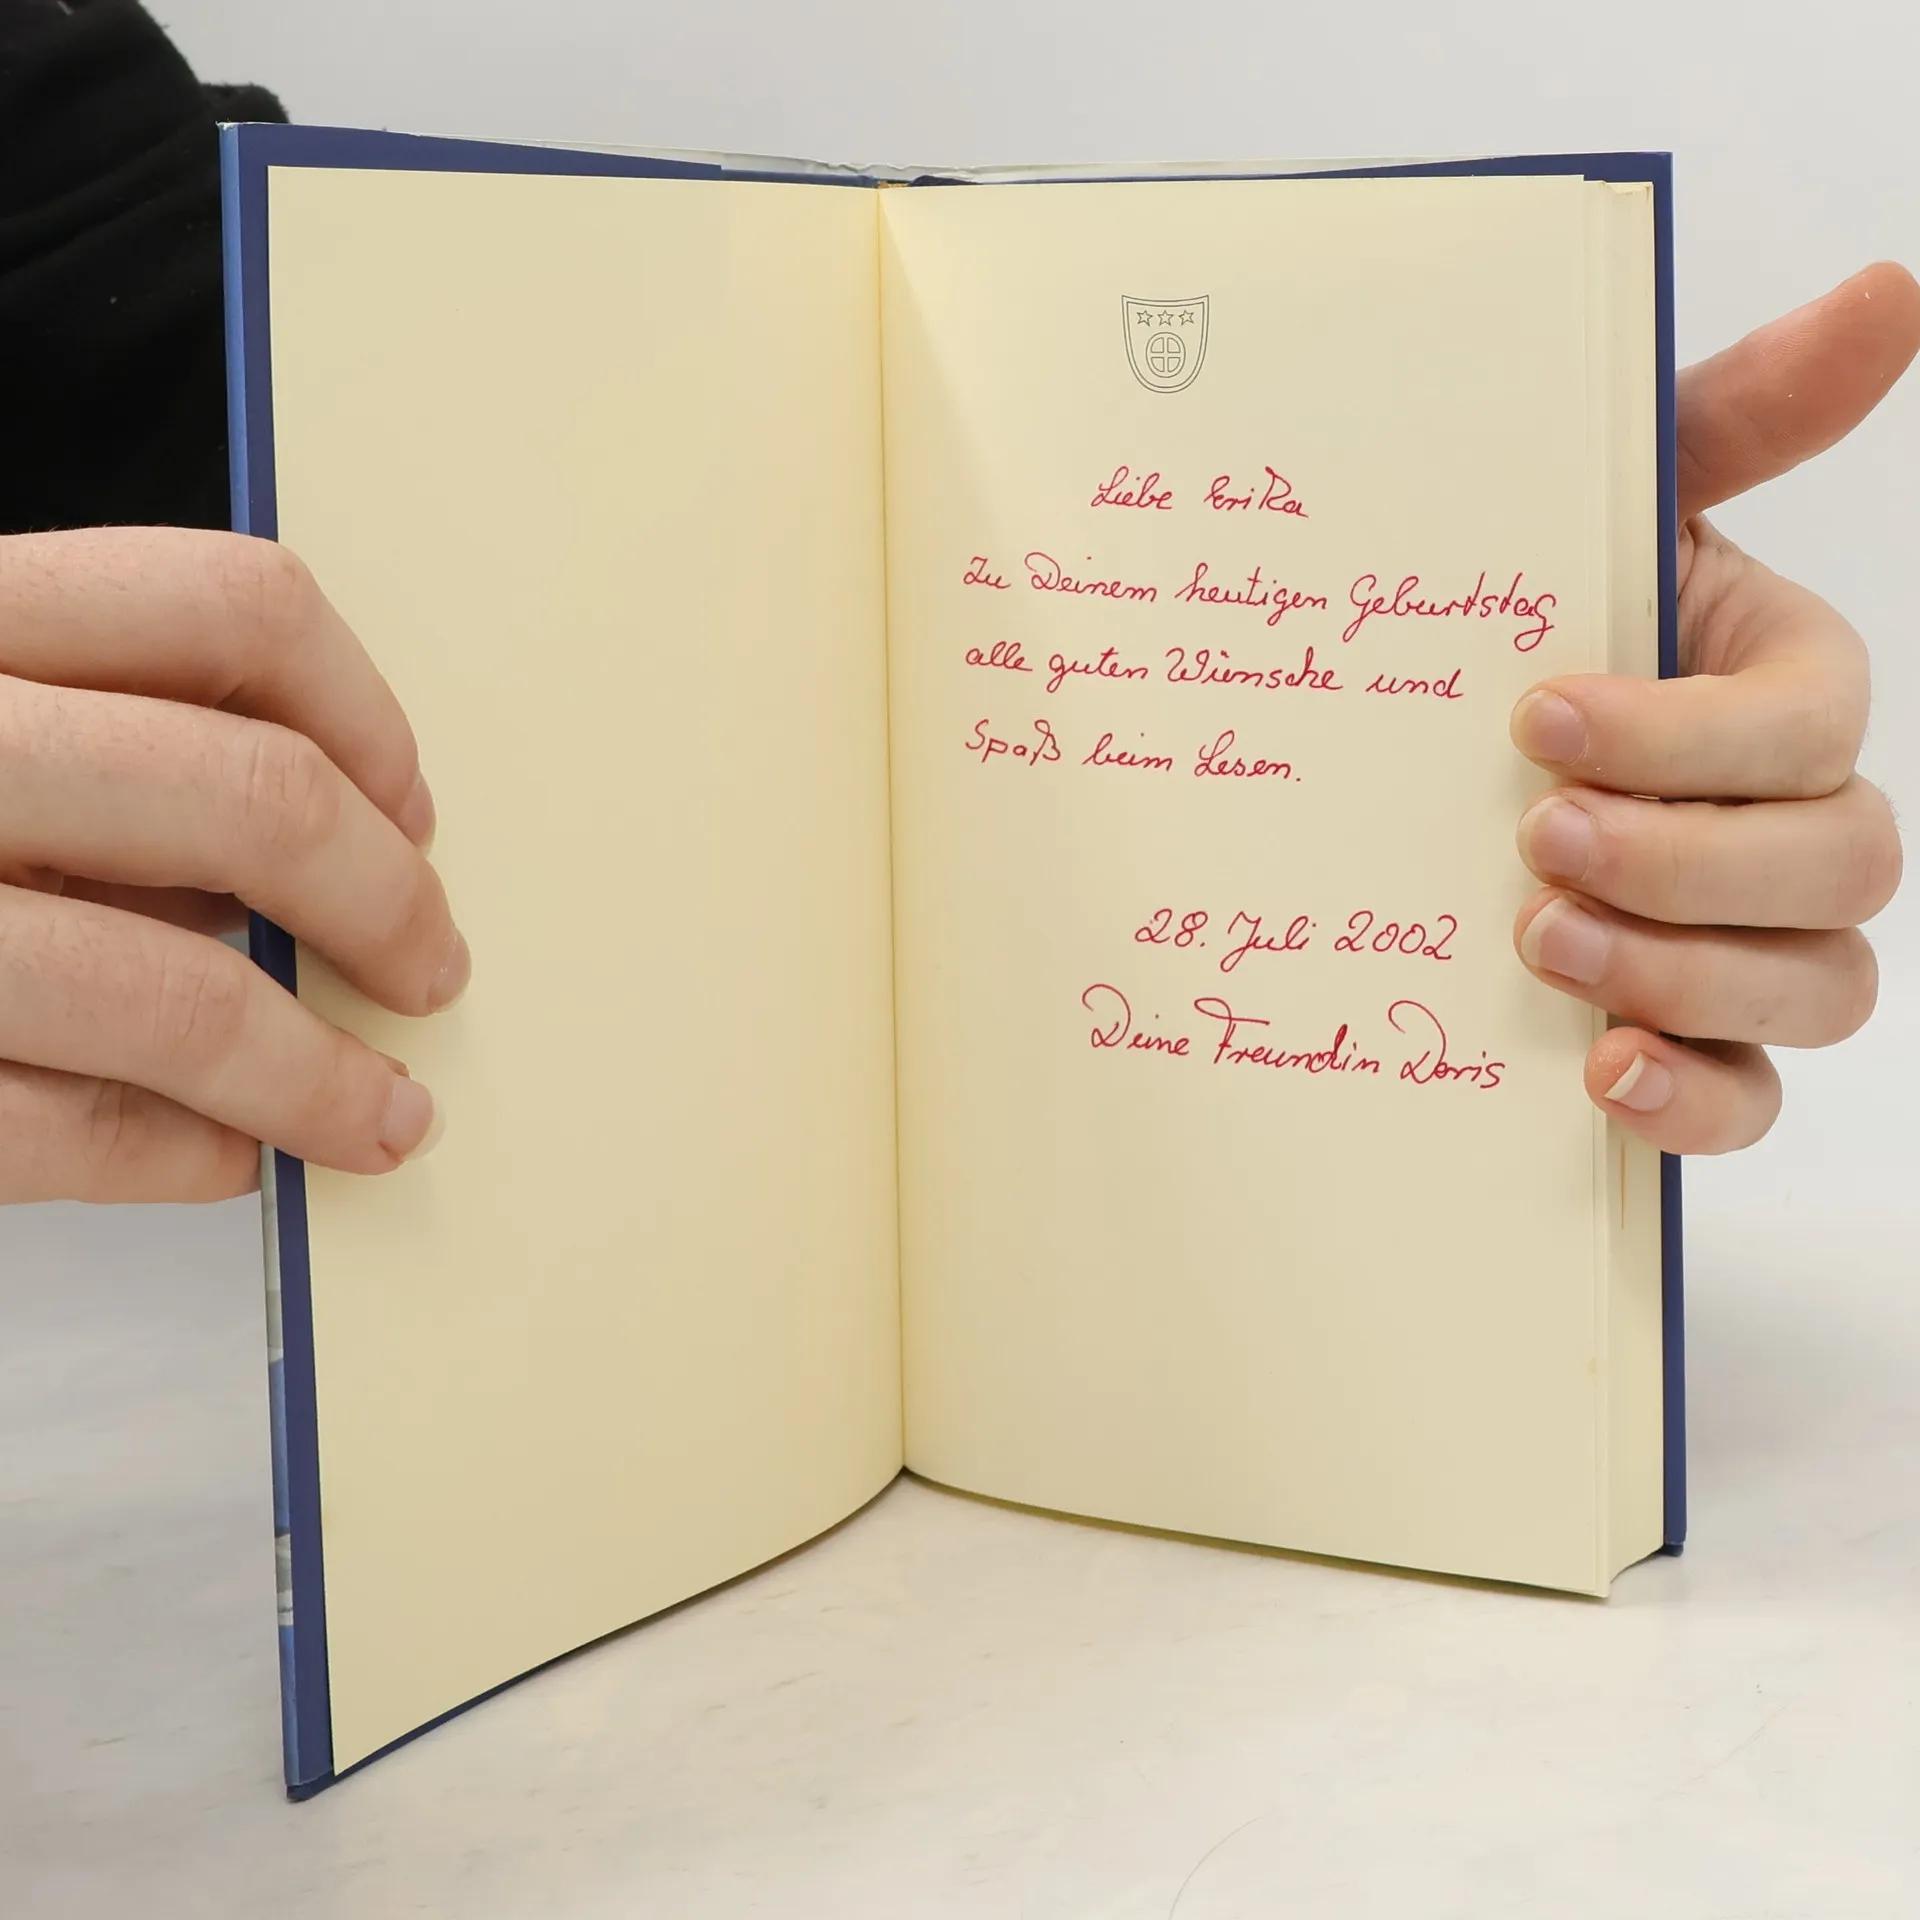 Liebe Erika
Zu Deinem heutigen Geburtstag
alle guten Wünsche und
Spaß beim Lesen.
28. Juli 2002
Deine Freundin Doris